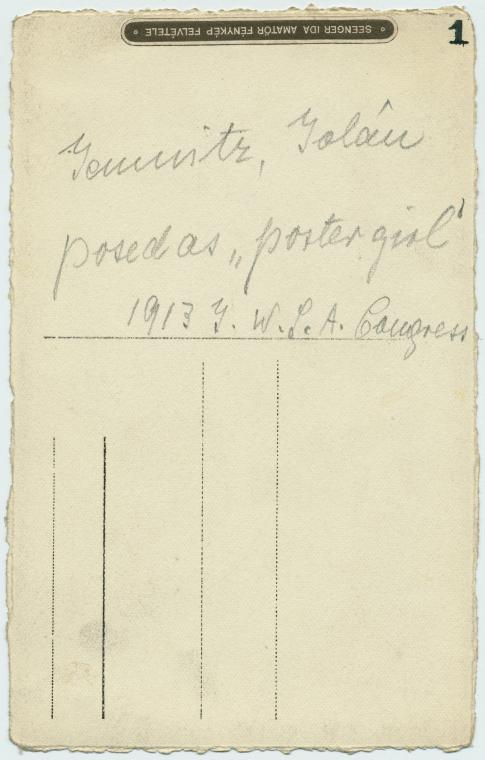 SEENGER IDA AMATŐR FÉNYKÉP FELVÉTELE
1
Jemnitz, Jolán
posed as „poster girl"
1913 I. W. S. A. Congress